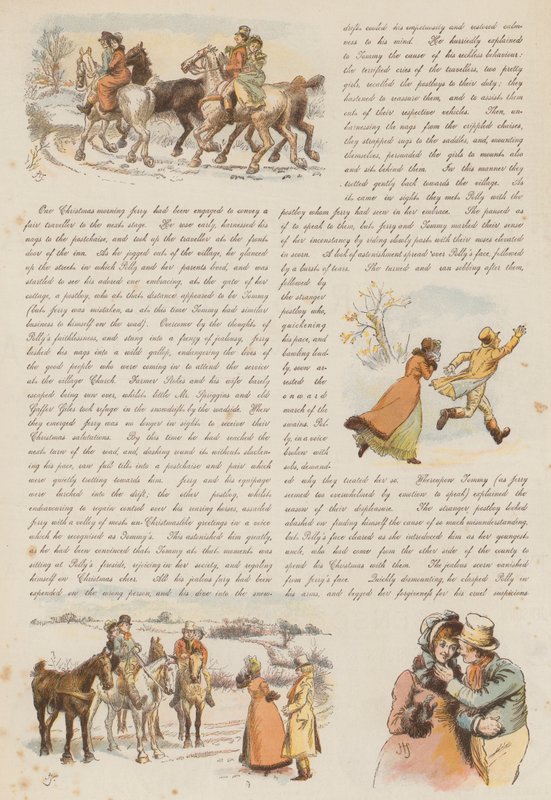 One Christmas morning Jerry had been engaged to convey a
fair traveller to the next stage. He rose early, harnessed his
nags to the postchaise, and took up the traveller at the front
door of the inn. As he jogged out of the village, he glanced
up the street in which Polly and her parents lived, and was
startled to see his adored one embracing, at the gate of her
cottage, a postboy, who at that distance appeared to be Tommy
(but Jerry was mistaken, as at this time Tommy had similar
business to himself on the road). Overcome by the thought of
Polly's faithlessness, and stung into a frenzy of jealousy, Jerry
lashed his nags into a wild gallop, endangering the lives of
the good people who were coming in to attend the service
at the village Church. Farmer Stokes and his wife barely
escaped being run over, whilst little Mr. Spriggins and old
Gaffer Giles took refuge in the snowdrift by the wayside. When
they emerged Jerry was no longer in sight to receive their
Christmas salutations. By this time he had reached the
next turn of the road, and, dashing round it without slacken-
ing his pace, ran full tilt into a postchaise and pair which
were quietly trotting towards him. Jerry and his equipage
were pitched into the drift; the other postboy, whilst
endeavouring to regain control over his rearing horses, assailed
Jerry with a volley of most un-Christmaslike greetings in a voice
which he recognised as Tommy's. This astonished him greatly,
as he had been convinced that Tommy at that moment was
sitting at Polly's fireside, rejoicing in her society, and regaling
himself on Christmas cheer. All his jealous fury had been
expended on the wrong person, and his dive into the snow-
drift cooled his impetuosity and restored calm-
ness to his mind. He hurriedly explained
to Tommy the cause of his reckless behaviour:
the terrified cries of the travellers, two pretty
girls, recalled the postboys to their duty; they
hastened to reassure them, and to assist them
out of their respective vehicles. Then, un-
harnessing the nags from the crippled chaises,
they strapped rugs to the saddles, and, mounting
themselves, persuaded the girls to mount also
and sit behind them. In this manner they
trotted gently back towards the village. As
it came in sight they met Polly with the
postboy whom Jerry had seen in her embrace. She paused as
if to speak to them, but Jerry and Tommy marked their sense
of her inconstancy by riding slowly past with their noses elevated
in scorn. A look of astonishment spread over Polly's face, followed
by a burst of tears. She turned and ran sobbing after them,
followed by
the stranger
postboy who,
quickening
his pace, and
bawling loud-
ly, soon ar-
rested the
onward
march of the
swains. Pol-
ly, in a voice
broken with
sobs, demand-
ed why they treated her so. Whereupon Tommy (as Jerry
seemed too overwhelmed by emotion to speak) explained the
reason of their displeasure. The stranger postboy looked
abashed on finding himself the cause of so much misunderstanding,
but Polly's face cleared as she introduced him as her youngest
uncle, who had come from the other side of the county to
spend his Christmas with them. The jealous scorn vanished
from Jerry's face. Quickly dismounting, he clasped Polly in
his arms, and begged her forgiveness for his cruel suspicions